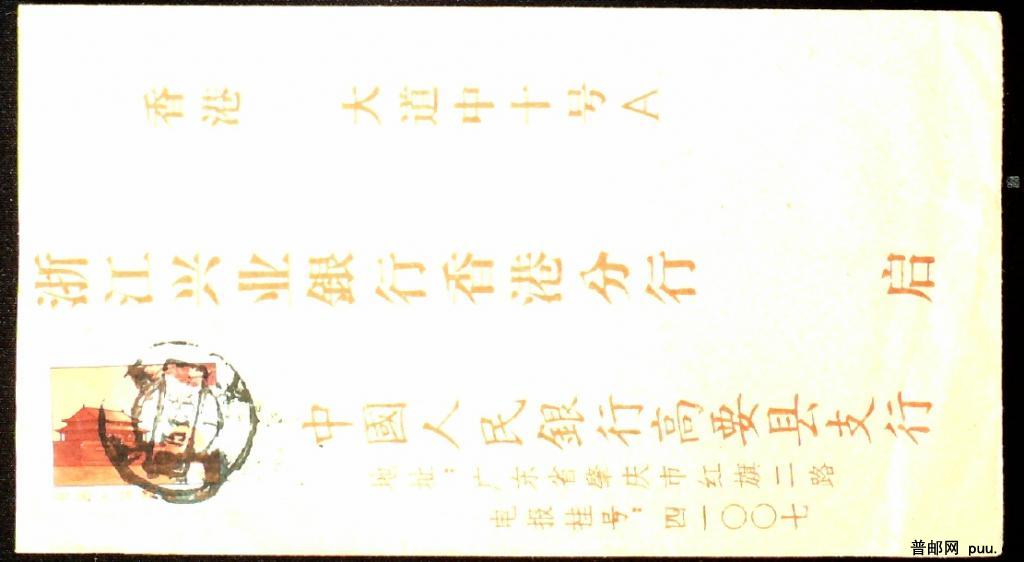 香港 大道中十号A
浙江兴业銀行香港分行 启
中國人民銀行高要县支行
地址：广东省肇庆市红旗二路
电报挂号：四一〇〇七
普邮网 puu.